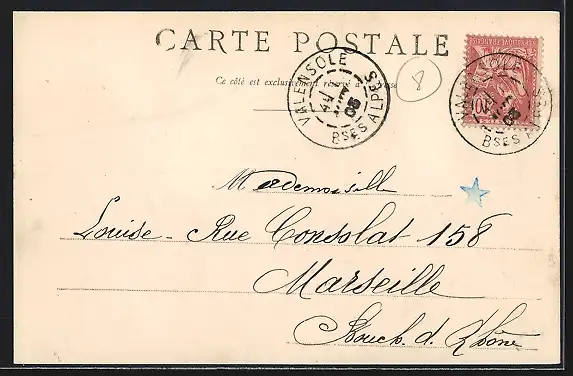 CARTE POSTALE
Ce côté est exclusivement réservé à l'adresse
VALENSOLE
BSES ALPES
05
8
VALENSOLE
BSES ALPES
05
10
REPUBLIQUE FRANÇAISE
Mademoiselle
Louise - Rue Consolat 158
Marseille
Bouch. d. Rhône